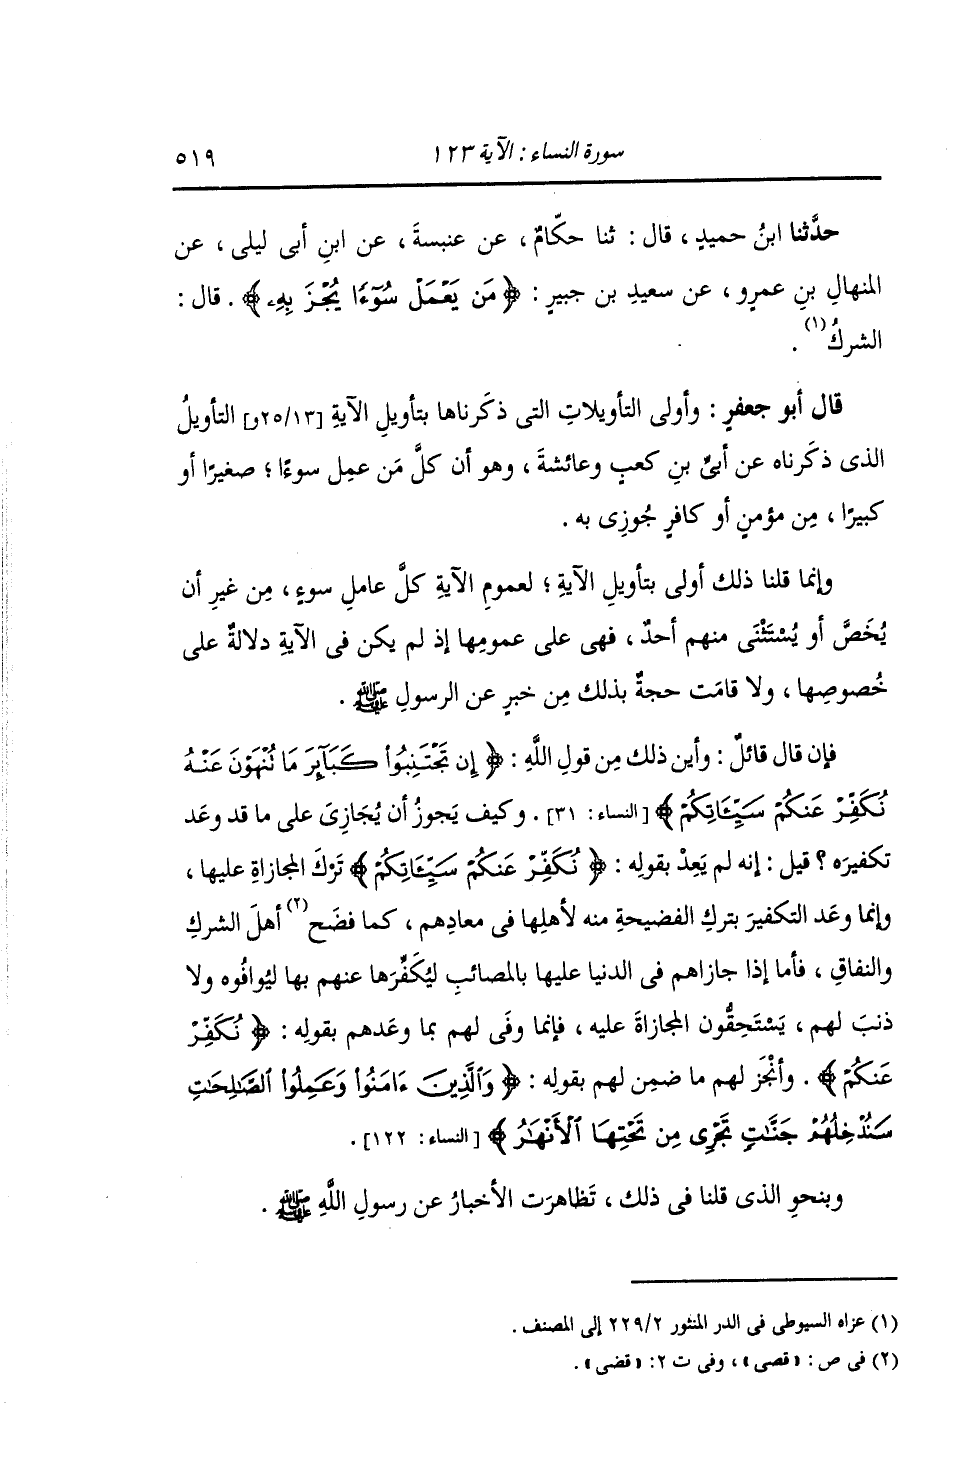 سورة النساء : الآية ١٢٣ ٥١٩
حدَّثنا ابنُ حميدٍ ، قال : ثنا حكّامٌ ، عن عنبسةَ ، عن ابنِ أبى ليلى ، عن
المنهالِ بنِ عمرٍو ، عن سعيدِ بن جبيرٍ : ﴿ مَن يَعْمَلْ سُوٓءًا يُجْزَ بِهِۦ ﴾ . قال :
الشركُ(١) .
قال أبو جعفرٍ : وأولى التأويلاتِ التى ذكَرناها بتأويلِ الآيةِ [٢٥/١٣و] التأويلُ
الذى ذكَرناه عن أبىِّ بنِ كعبٍ وعائشةَ ، وهو أن كلَّ مَن عمِل سوءًا ؛ صغيرًا أو
كبيرًا ، مِن مؤمنٍ أو كافرٍ جُوزِى به .
وإنما قلنا ذلك أولى بتأويلِ الآيةِ ؛ لعمومِ الآيةِ كلَّ عاملِ سوءٍ ، مِن غيرِ أن
يُخَصَّ أو يُسْتَثْنَى منهم أحدٌ ، فهى على عمومِها إذ لم يكن فى الآيةِ دلالةٌ على
خُصوصِها ، ولا قامَت حجةٌ بذلك مِن خبرٍ عن الرسولِ ﷺ .
فإن قال قائلٌ : وأين ذلك مِن قولِ اللَّهِ : ﴿ إِن تَجْتَنِبُوا۟ كَبَآئِرَ مَا تُنْهَوْنَ عَنْهُ
نُكَفِّرْ عَنكُمْ سَيِّـَٔاتِكُمْ ﴾ [النساء : ٣١] . وكيف يَجوزُ أن يُجَازِىَ على ما قد وعَد
تكفيرَه ؟ قيل : إنه لم يَعِدْ بقولِه : ﴿ نُكَفِّرْ عَنكُمْ سَيِّـَٔاتِكُمْ ﴾ تَرْكَ المجازاةِ عليها ،
وإنما وعَد التكفيرَ بتركِ الفضيحةِ منه لأهلِها فى معادِهم ، كما فضَح(٢) أهلَ الشركِ
والنفاقِ ، فأما إذا جازاهم فى الدنيا عليها بالمصائبِ ليُكَفِّرَها عنهم بها ليُوافُوه ولا
ذنبَ لهم ، يَسْتَحِقُّون المجازاةَ عليه ، فإنما وفَى لهم بما وعَدهم بقولِه : ﴿ نُكَفِّرْ
عَنكُمْ ﴾ . وأَنْجَز لهم ما ضمِن لهم بقولِه : ﴿ وَٱلَّذِينَ ءَامَنُوا۟ وَعَمِلُوا۟ ٱلصَّـٰلِحَـٰتِ
سَنُدْخِلُهُمْ جَنَّـٰتٍ تَجْرِى مِن تَحْتِهَا ٱلْأَنْهَـٰرُ ﴾ [النساء : ١٢٢] .
وبنحوِ الذى قلنا فى ذلك ، تَظاهرَت الأخبارُ عن رسولِ اللَّهِ ﷺ .
(١) عزاه السيوطى فى الدر المنثور ٢٢٩/٢ إلى المصنف .
(٢) فى ص : «قصى» ، وفى ت ٢ : «قضى» .